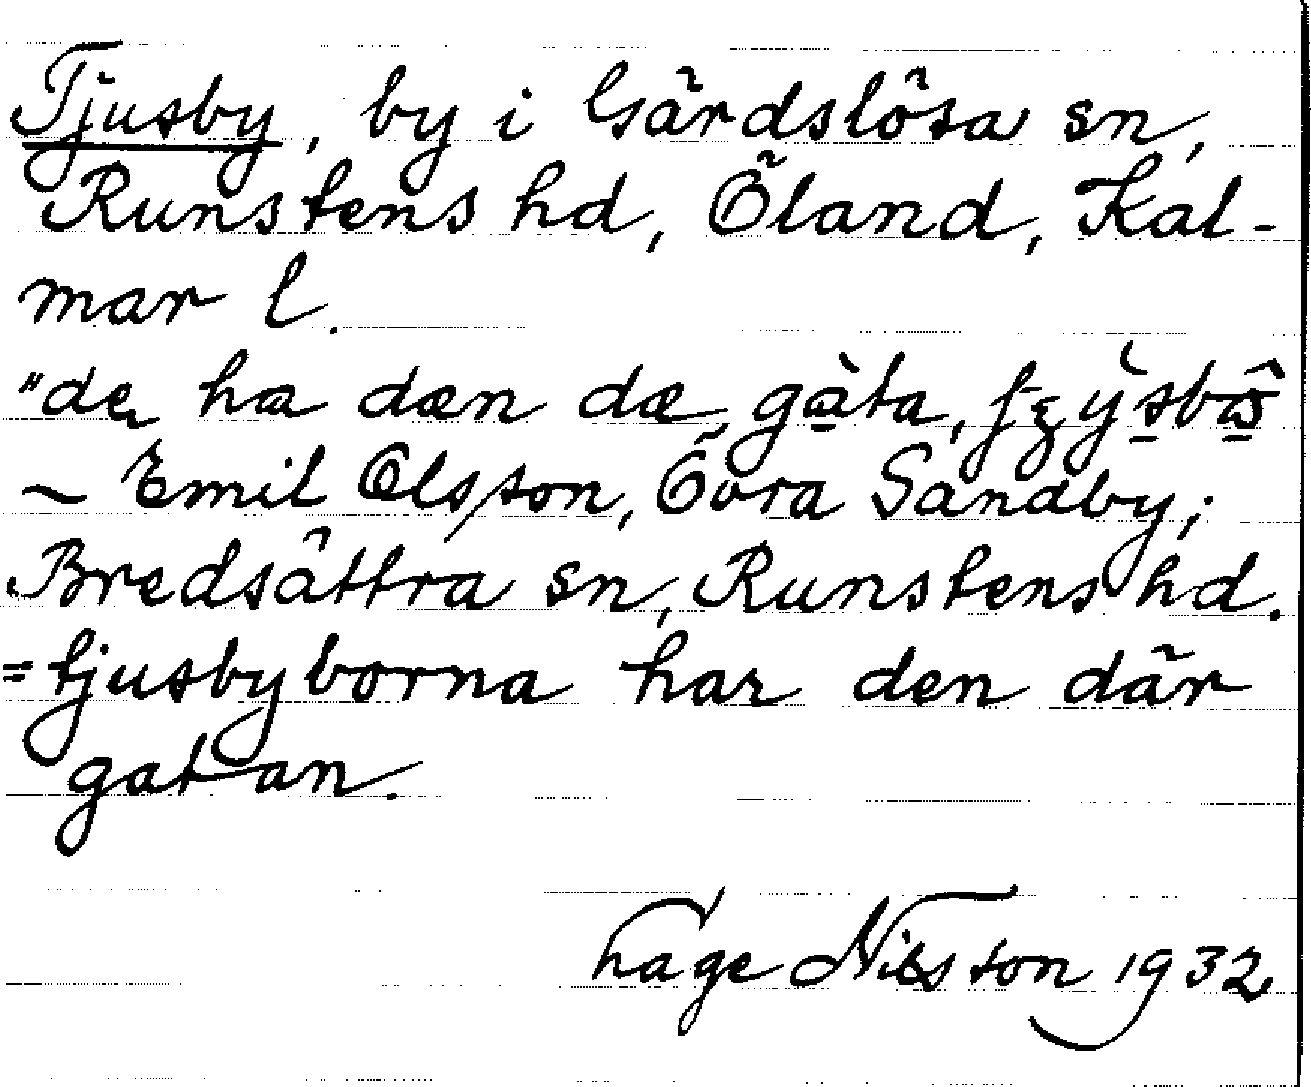 Tjusby, by i Gärdslösa sn,
Runstens hd, Öland, Kal-
mar l.
"de ha dæn dæ gàta,
— Emil Olsson, Övra Sandby,
Bredsättra sn, Runstens hd.
= tjusbyborna har den där
gatan.
Hage Nilsson 1932